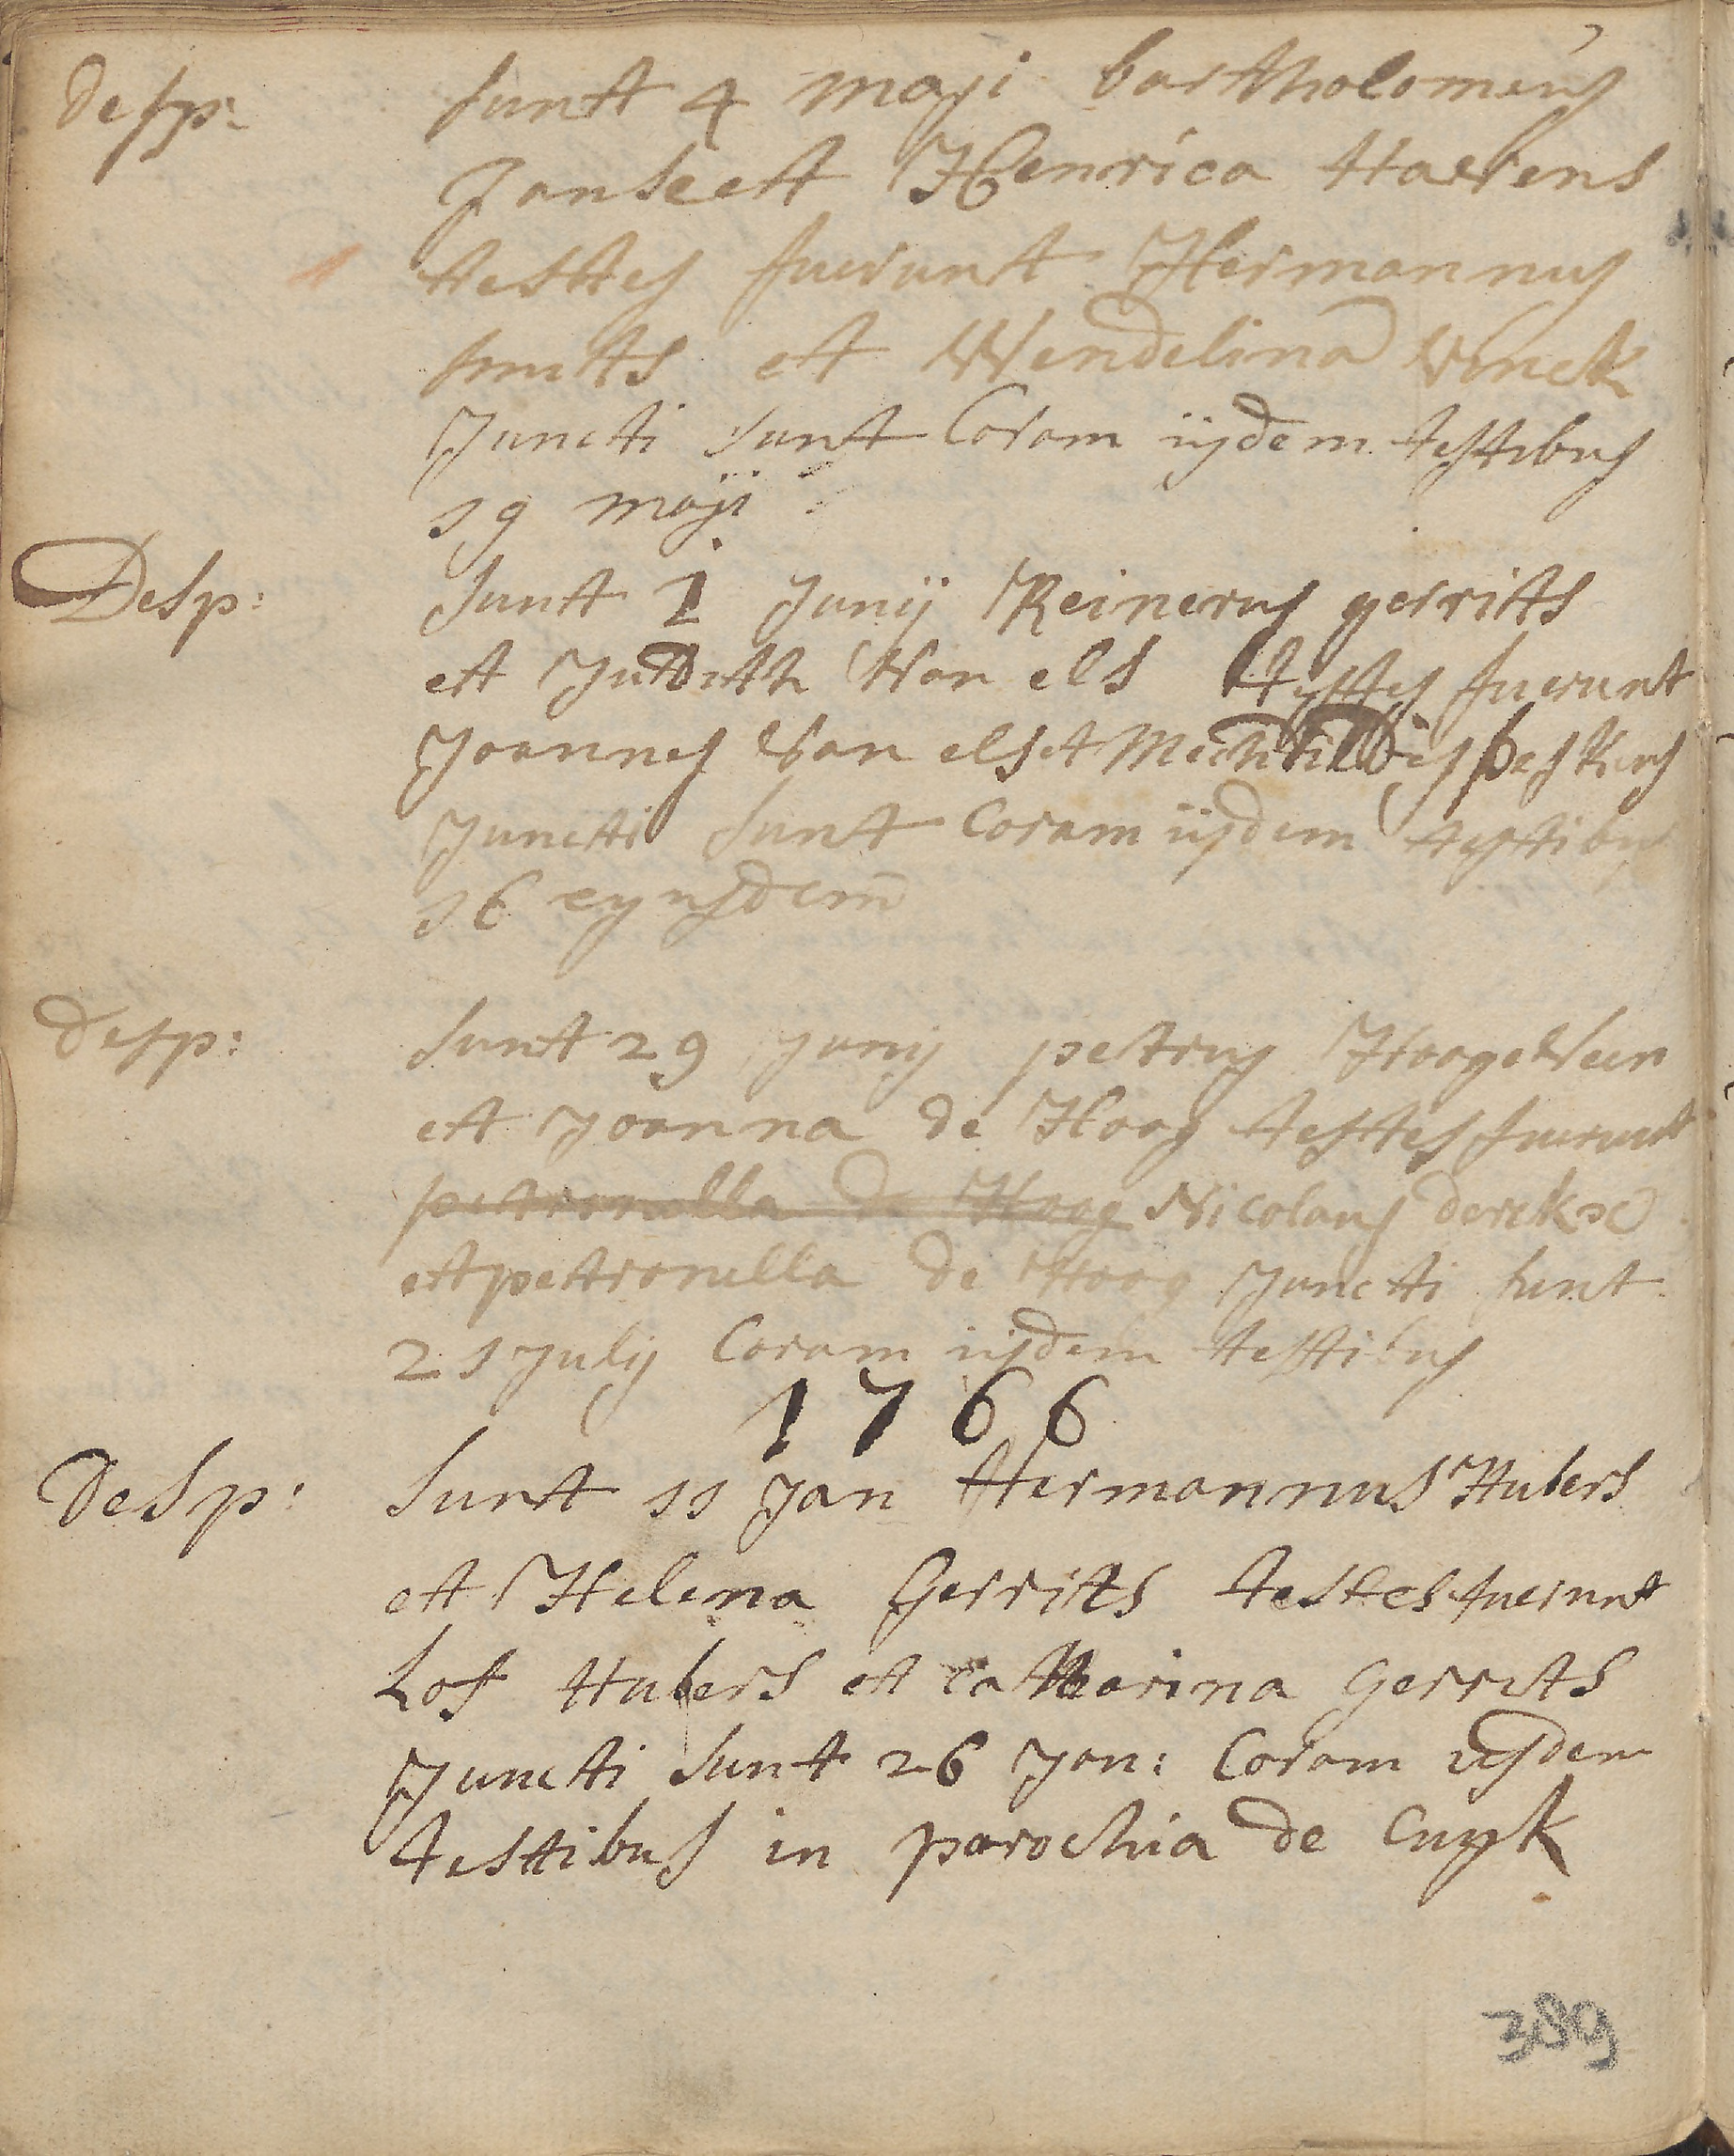 Desp: Sunt 4 maji bartholomeus
Janse ett Henrica Haerens
testes fuerunt Hermannus
smitts ett Wendelina Vinck
Juncti sunt Coram iijsdem testibus
19 maji
Desp: Sunt 1 Junij Reinerus gerrits
ett Judith Van els testes fuerunt
Joannes Van els et Mechtildis
Juncti sunt Coram iijsdem testibus
16 eyusdem
Desp: Sunt 29 Junij petrus HoogeVeen
ett Joanna de Hoog testes fuerunt
petronella de Hoog Nicolaus derckse
ett petronella de Hoog Juncti sunt
21 July Coram iijsdem testibus
1766
Desp: Sunt 11 Jan Hermannus Hubers
ett Helena Gerrits testes fuerunt
Lof Hubers ett Catharina Gerrits
Juncti sunt 26 Jan: Coram iijsdem
testibus in parochia de Cuyk
389